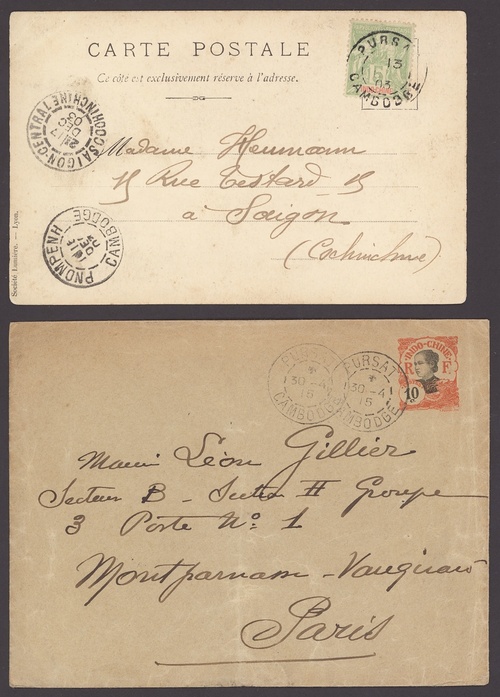 CARTE POSTALE
Ce côté est exclusivement réservé à l'adresse.
PURSAT
13
03
CAMBODGE
5
SAIGON-CENTRAL
COCHINCHINE
17
DEC
03
PNOMPENH
CAMBODGE
DEC
Madame Heumann
15 Rue Testard 15
à Saigon
(Cochinchine)
Société Lumière. — Lyon.
PURSAT
30-4
15
CAMBODGE
PURSAT
30-4
15
CAMBODGE
INDO-CHINE
R F
10
Léon Gillier
Secteur B - Section II Groupe
3 Poste No: 1
Montparnasse - Vaugirard
Paris